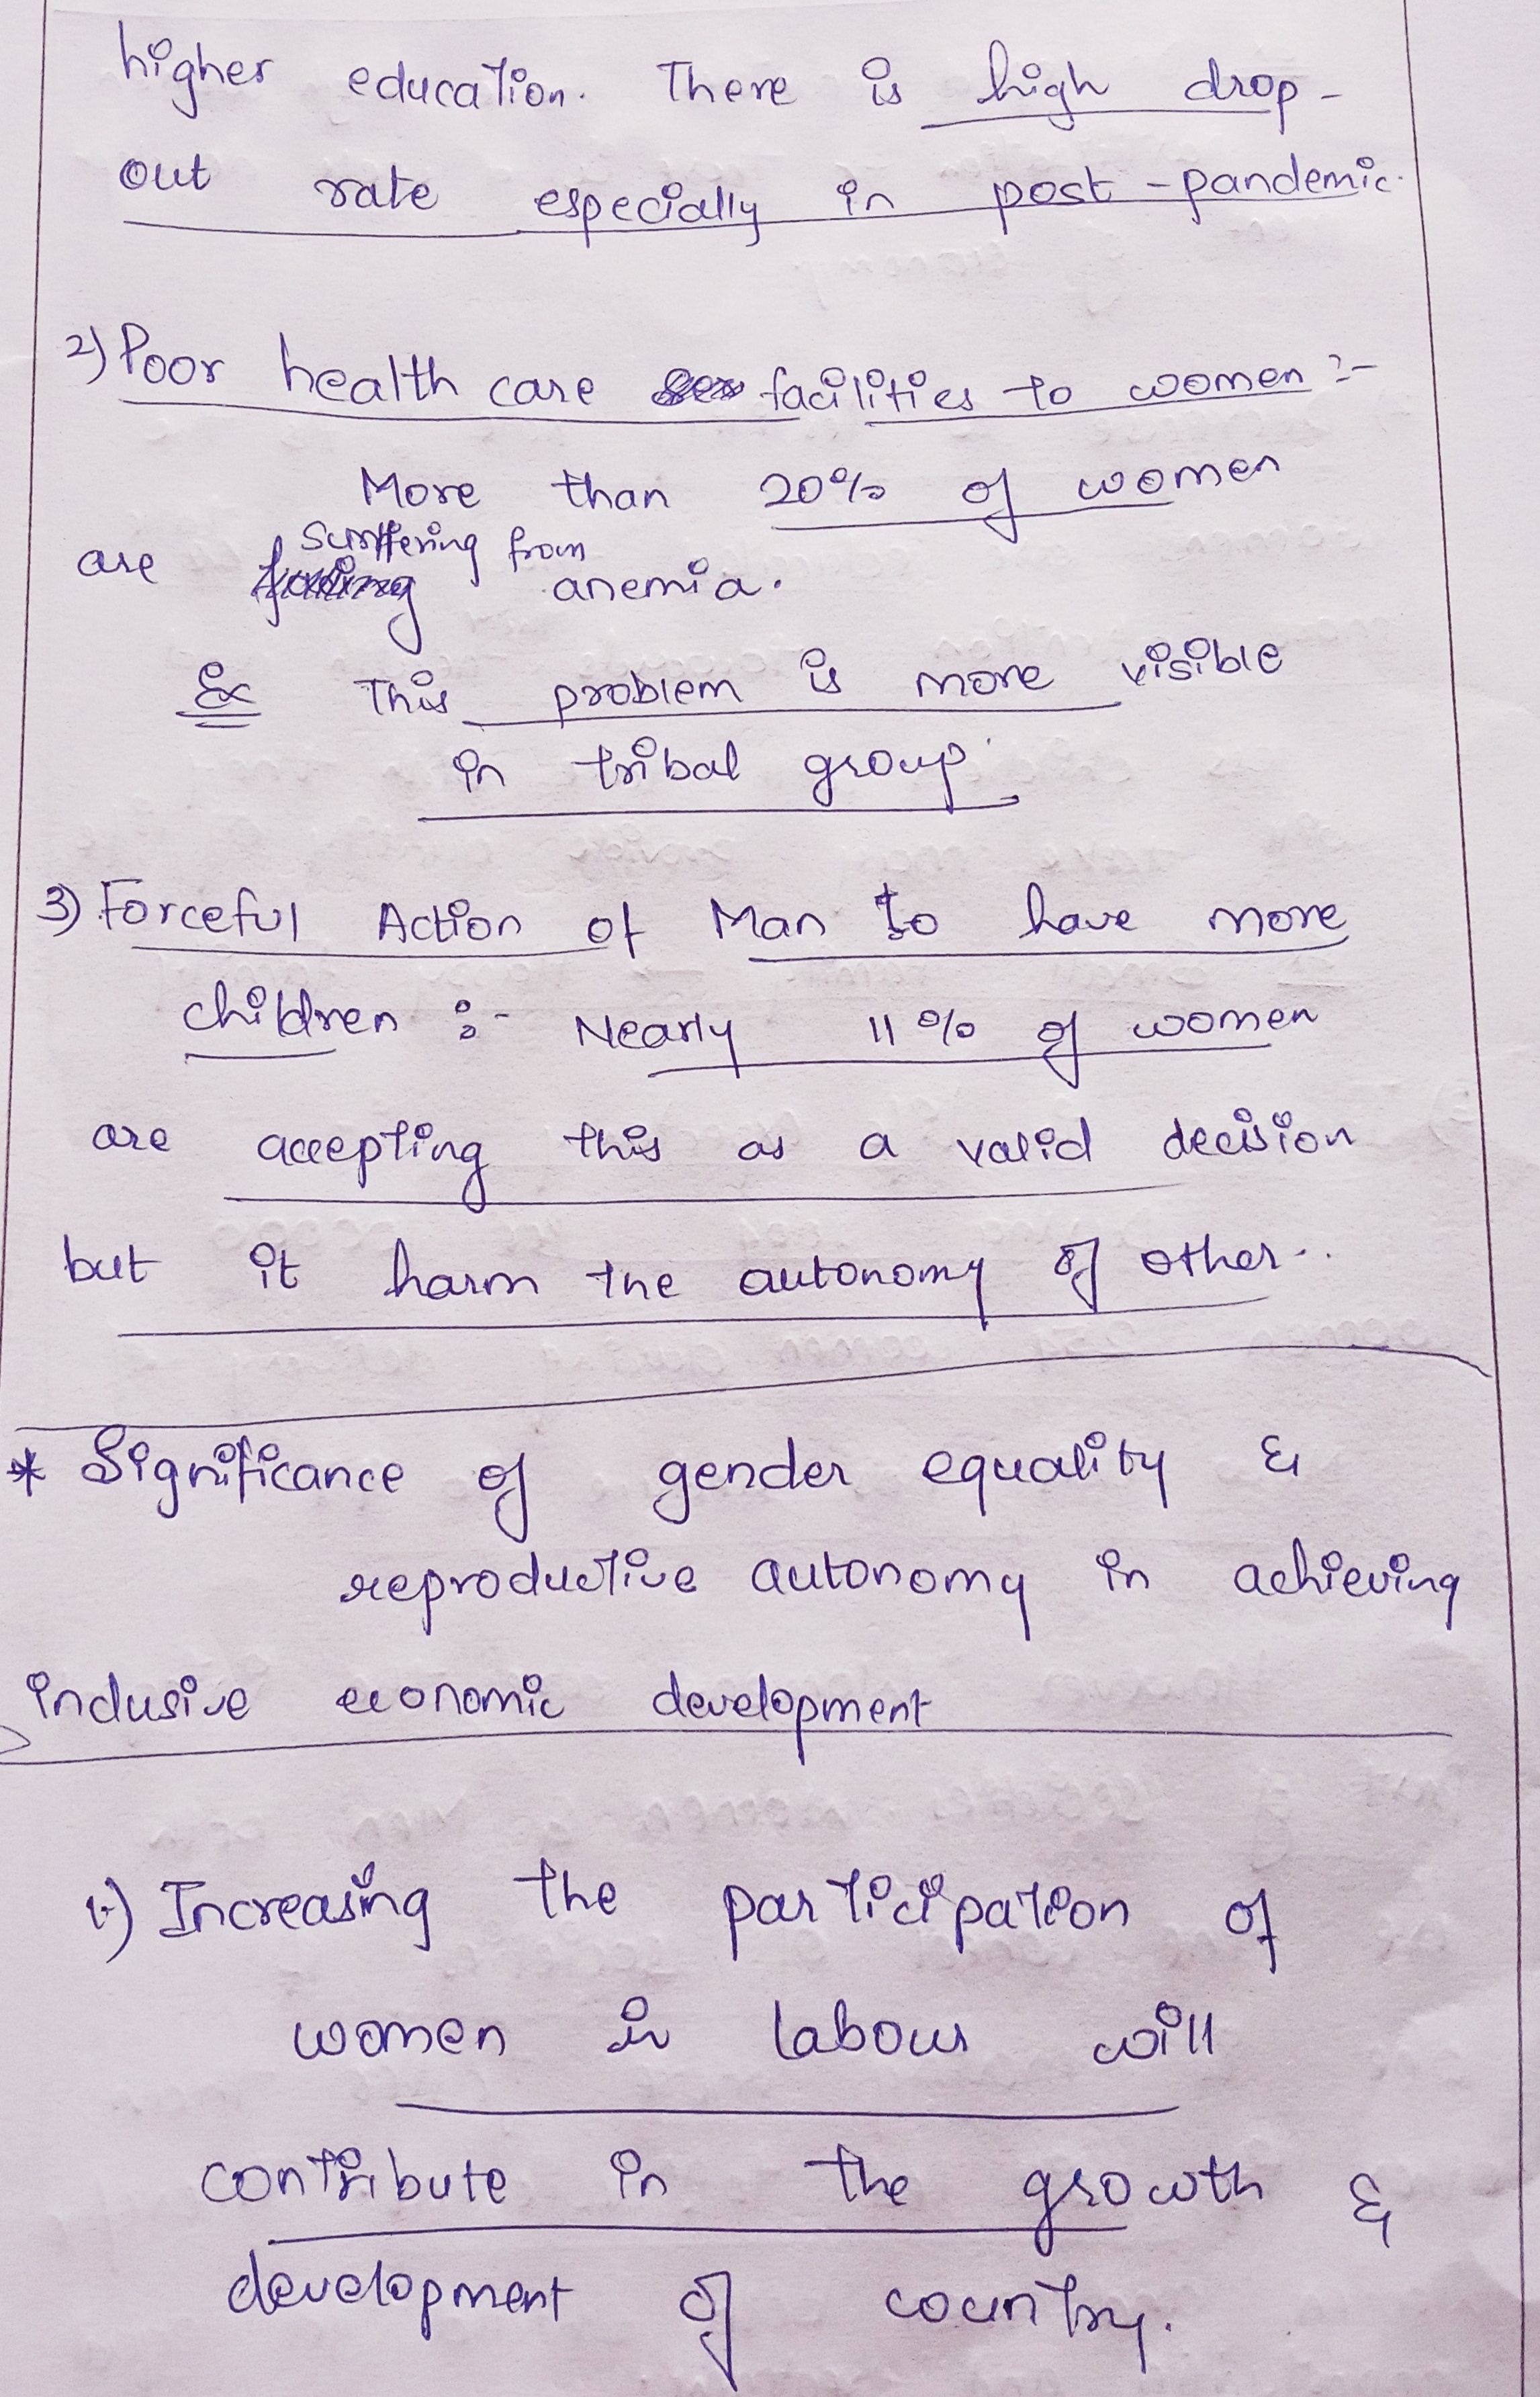 higher education. There is high drop-
out rate especially in post-pandemic.
2) Poor health care facilities to women :-
More than 20% of women
are suffering from anemia.
Ex This problem is more visible
in tribal group.
3) Forceful Action of Man to have more
children :- Nearly 11% of women
are accepting this as a valid decision
but it harm the autonomy of other..
* Significance of gender equality &
reproductive autonomy in achieving
inclusive economic development
1.) Increasing the participation of
women in labour will
contribute in the growth &
development of country.